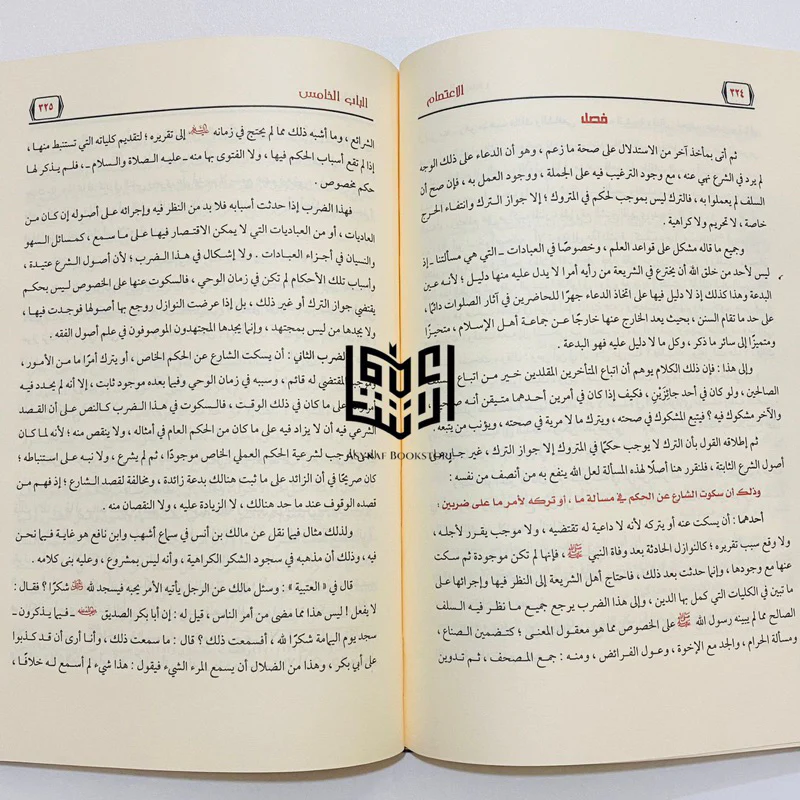 ٣٢٤
الاعتصام
فصل
ثم أتى بمأخذ آخر من الاستدلال على صحة ما زعم ، وهو أن الدعاء على ذلك الوجه
لم يرد في الشرع نهي عنه ، مع وجود الترغيب فيه على الجملة ، ووجود العمل به ، فإن صح أن
السلف لم يعملوا به ، فالترك ليس بموجب لحكم في المتروك ؛ إلا جواز الترك وانتفاء الحرج
خاصة ، لا تحريم ولا كراهية .
وجميع ما قاله مشكل على قواعد العلم ، وخصوصًا في العبادات ـ التي هي مسألتنا ـ إذ
ليس لأحد من خلق الله أن يخترع في الشريعة من رأيه أمرا لا يدل عليه منها دليل ؛ لأنه عين
البدعة وهذا كذلك إذ لا دليل فيها على اتخاذ الدعاء جهرًا للحاضرين في آثار الصلوات دائمًا ،
على حد ما تقام السنن ، بحيث يعد الخارج عنها خارجًا عن جماعة أهل الإسلام ، متحيزًا
ومتميزًا إلى سائر ما ذكر ، وكل ما لا يدل عليه فهو البدعة .
وإلى هذا : فإن ذلك الكلام يوهم أن اتباع المتأخرين المقلدين خير من اتباع السلف
الصالحين ، ولو كان في أحد جائزَيْنِ ، فكيف إذا كان في أمرين أحدهما متيقن أنه صحيح ،
والآخر مشكوك فيه ؟ فيتبع المشكوك في صحته ، ويترك ما لا مرية في صحته ، ويؤنب من يتبعه .
ثم إطلاقه القول بأن الترك لا يوجب حكمًا في المتروك إلا جواز الترك ، غير جار على
أصول الشرع الثابتة ، فلنقرر هنا أصلًا لهذه المسألة لعل الله ينفع به من أنصف من نفسه :
وذلك أن سكوت الشارع عن الحكم في مسألة ما ، أو تركه لأمر ما على ضربين :
أحدهما : أن يسكت عنه أو يتركه لأنه لا داعية له تقتضيه ، ولا موجب يقرر لأجله ،
ولا وقع سبب تقريره ؛ كالنوازل الحادثة بعد وفاة النبي ﷺ ، فإنها لم تكن موجودة ثم سكت
عنها مع وجودها ، وإنما حدثت بعد ذلك ، فاحتاج أهل الشريعة إلى النظر فيها وإجرائها على
ما تبين في الكليات التي كمل بها الدين ، وإلى هذا الضرب يرجع جميع ما نظر فيه السلف
الصالح مما لم يبينه رسول الله ﷺ على الخصوص مما هو معقول المعنى ؛ كتضمين الصناع ،
ومسألة الحرام ، والجد مع الإخوة ، وعول الفرائض ، ومنه : جمع المصحف ، ثم تدوين
الباب الخامس
٣٢٥
الشرائع ، وما أشبه ذلك مما لم يحتج في زمانه إلى تقريره ؛ لتقديم كلياته التي تستنبط منها ،
إذا لم تقع أسباب الحكم فيها ، ولا الفتوى بها منه ـ عليه الصلاة والسلام ـ ، فلم يذكر لها
حكم مخصوص .
فهذا الضرب إذا حدثت أسبابه فلا بد من النظر فيه وإجرائه على أصوله إن كان من
العاديات ، أو من العباديات التي لا يمكن الاقتصار فيها على ما سمع ، كمسائل السهو
والنسيان في أجزاء العبادات . ولا إشكال في هذا الضرب ؛ لأن أصول الشرع عتيدة ،
وأسباب تلك الأحكام لم تكن في زمان الوحي ، فالسكوت عنها على الخصوص ليس بحكم
يقتضي جواز الترك أو غير ذلك ، بل إذا عرضت النوازل روجع بها أصولها فوجدت فيها ،
ولا يجدها من ليس بمجتهد ، وإنما يجدها المجتهدون الموصوفون في علم أصول الفقه .
الضرب الثاني : أن يسكت الشارع عن الحكم الخاص ، أو يترك أمرًا ما من الأمور ،
وموجبه المقتضي له قائم ، وسببه في زمان الوحي وفيما بعده موجود ثابت ، إلا أنه لم يحدد فيه
أمر زائد على ما كان في ذلك الوقت ، فالسكوت في هذا الضرب كالنص على أن القصد
الشرعي فيه أن لا يزاد فيه على ما كان من الحكم العام في أمثاله ، ولا ينقص منه ؛ لأنه لما كان
الموجب لشرعية الحكم العملي الخاص موجودًا ، ثم لم يشرع ، ولا نبه على استنباطه ؛
كان صريحًا في أن الزائد على ما ثبت هنالك بدعة زائدة ، ومخالفة لقصد الشارع ؛ إذ فهم من
قصده الوقوف عند ما حد هنالك ، لا الزيادة عليه ، ولا النقصان منه .
ولذلك مثال فيما نقل عن مالك بن أنس في سماع أشهب وابن نافع هو غاية فيما نحن
فيه ، وذلك أن مذهبه في سجود الشكر الكراهية ، وأنه ليس بمشروع ، وعليه بنى كلامه .
قال في « العتبية » : وسئل مالك عن الرجل يأتيه الأمر يحبه فيسجد لله شكرًا ؟ فقال :
لا يفعل ! ليس هذا مما مضى من أمر الناس ، قيل له : إن أبا بكر الصديق ـ فيما يذكرون ـ
سجد يوم اليمامة شكرًا لله ، أفسمعت ذلك ؟ قال : ما سمعت ذلك ، وأنا أرى أن قد كذبوا
على أبي بكر ، وهذا من الضلال أن يسمع المرء الشيء فيقول : هذا شيء لم أسمع له خلافًا ،
ASYNAF BOOKSTORE